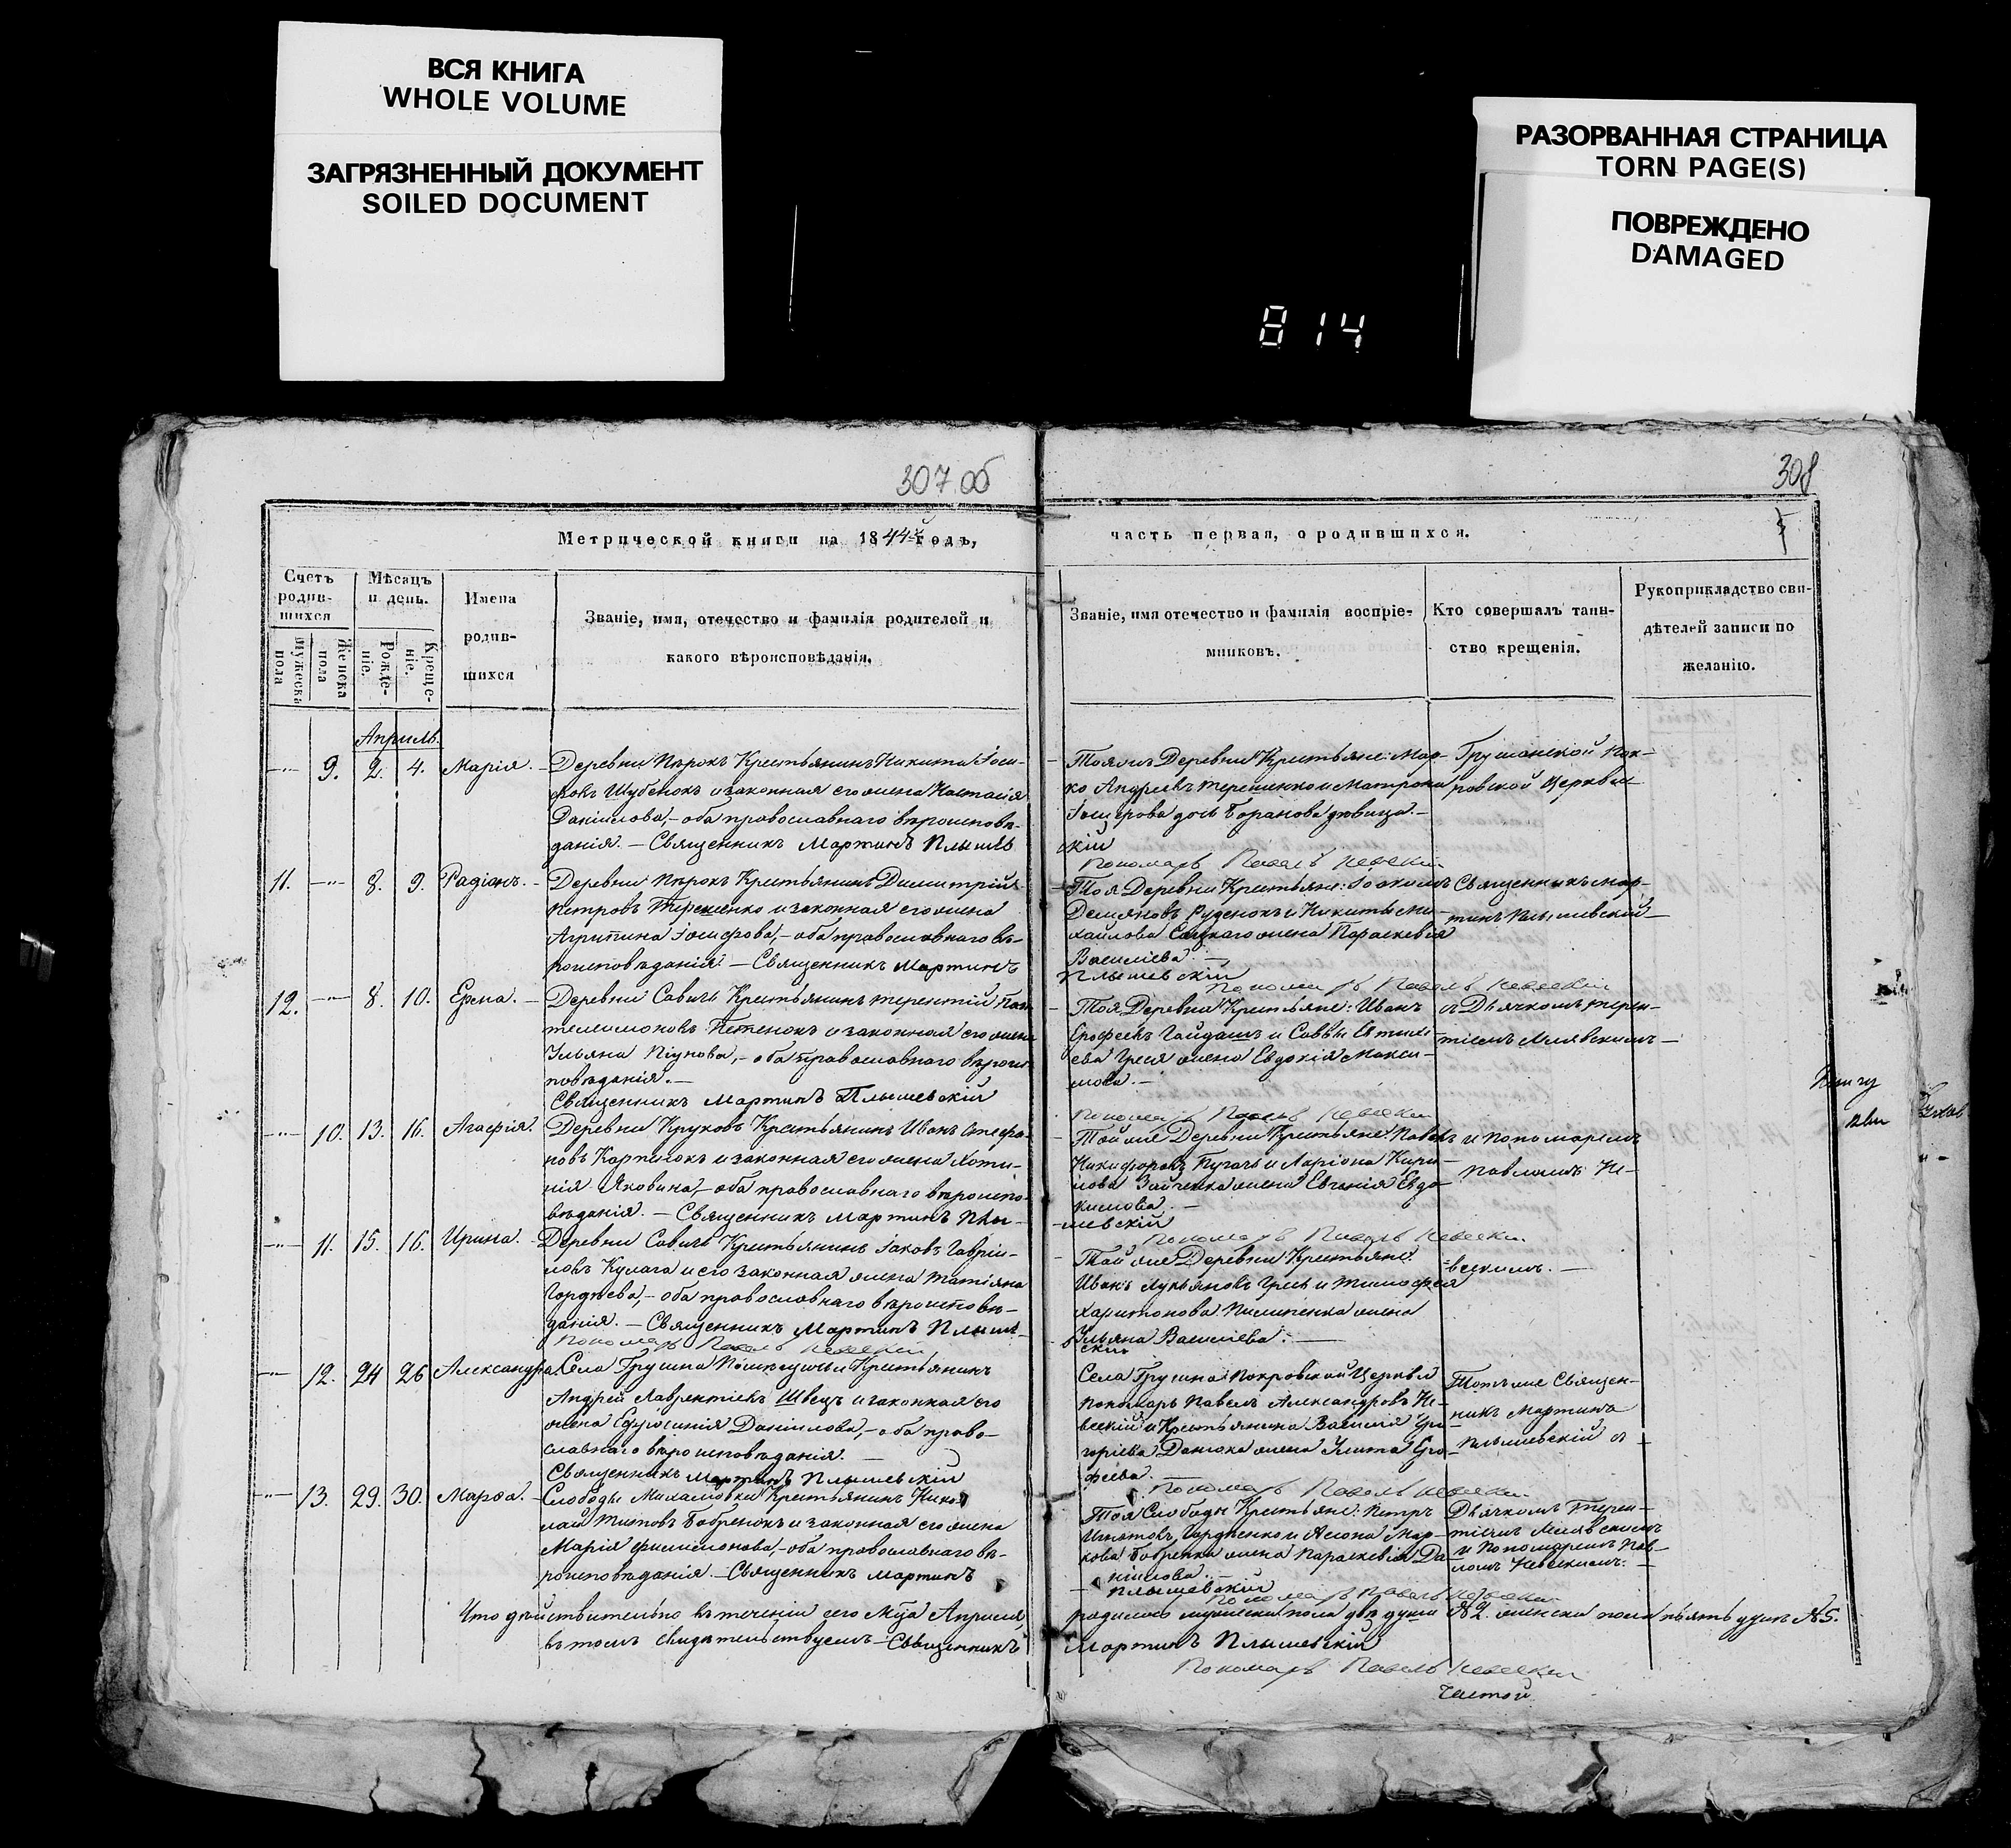 ВСЯ КНИГА
WHOLE VOLUME
ЗАГРЯЗНЕННЫЙ ДОКУМЕНТ
SOILED DOCUMENT
РАЗОРВАННАЯ СТРАНИЦА
TORN PAGE(S)
ПОВРЕЖДЕНО
DAMAGED
814
307 об
308
Метрической книги на 1844й годъ,
часть первая, о родившихся.
Счетъ родив-шихся
Мужеска пола
Женска пола
Мѣсяцъ и день.
Рожде-ніе.
Креще-ніе.
Имена родив-шихся
Званіе, имя, отечество и фамилія родителей и
какого вѣроисповѣданія.
Званіе, имя отечество и фамилія воспріе-
мниковъ.
Кто совершалъ таин-
ство крещенія.
Рукоприкладство сви-
дѣтелей записи по
желанію.
Апрѣль
9. 2. 4. Марія.
Деревни Пѣрокъ Крестьянинъ Никита Іоси-
фовъ Шубенокъ и законная его жена Настасія
Даніилова, - оба православнаго вѣроисповѣ-
данія. - Священникъ Мартинъ Плышев
скій
Тояжъ Деревни Крестьяне: Мар-
ко Андреевъ Терешенко и Матрона
Іосифова дочь Баранова дѣвица. -
Пономарь Павелъ Невскій
Грушанской Пок-
ровской Церкви
11. 8. 9. Радіонъ.
Деревни Пѣрокъ Крестьянинъ Димитрій
Петровъ Терешенко и законная его жена
Агрипина Іосифова, - оба православнаго вѣ-
роисповѣданія. - Священникъ Мартинъ
Плышевскій
Тоя Деревни Крестьяне: Іоакимъ
Демяновъ Руденокъ и Никиты Ми-
хайлова жена Параскевія
Василіева. -
Пономарь Павелъ Невскій
Священникъ Мар-
тинъ Плышевскій
12. 8. 10. Ерема.
Деревни Савичь Крестьянинъ Терентій Пан
телимоновъ и законная его жена
Ульяна - оба православнаго вѣроис
повѣданія. -
Священникъ Мартинъ Плышевскій
Тоя Деревни Крестьяне: Иванъ
Ерофеевъ Гайдашъ и Саввы Евтихі-
ева Греся жена Евдокія Макси-
мова. -
Пономарь Павелъ Невскій
съ Дьячкомъ Терен-
тіемъ
10. 13. 16. Агафія.
Деревни Круковъ Крестьянинъ Иванъ Стефа-
новъ Карпенокъ и законная его жена Хоти-
нія Яковина, - оба православнаго вѣроиспо-
вѣданія. - Священникъ Мартинъ Плы-
шевскій
Той же Деревни Крестьяне: Павелъ
Никифоровъ Пугачъ и Ларіона Кири-
лова Зайченка жена Евгенія Евдо-
кимова. -
Пономарь Павелъ Невскій
и Пономаремъ
Павломъ Не-
11. 15. 16. Ирина.
Деревни Савичь Крестьянинъ Іаковъ Гавріи-
ловъ Кулага и его законная жена Татіяна
Гордѣева, - оба православнаго вѣроисповѣ-
данія. - Священникъ Мартинъ Плыше-
вскій
Пономарь Павелъ Невскій
Той же Деревни Крестьяне:
Иванъ Лукьяновъ Гресь и Тимофея
Харитонова Пилипенка жена
Ульяна Василіева. -
вскимъ. -
12. 24 26 Александра.
Села Грушна Крестьянинъ
Андрей Лаврентіевъ Швецъ и законная его
жена Ефросинія Даніилова, - оба право-
славнаго вѣроисповѣданія. -
Священникъ Мартинъ Плышевскій
Села Грушна Покровской Церкви
Пономарь Павелъ Александровъ Не-
вскій и Крестьянина Василія Гри-
горіева Данюка жена Улита Еро-
феева. -
Пономарь Павелъ Невскій
Тотъже Священ-
никъ Мартинъ
Плышевскій съ
13. 29. 30. Марѳа.
Слободы Михаловки Крестьянинъ Нико
лай Титовъ Бобренокъ и законная его жена
Марія Филимонова, - оба православнаго вѣ-
роисповѣданія. - Священникъ Мартинъ
Плышевскій
Тоя Слободы Крестьяне: Петръ
Игнатовъ Гордѣенко и Мар-
кова Бобренка жена Параскевія Да-
ніилова. -
Пономарь Павелъ Невскій
Дьячкомъ Терен-
тіемъ
и Пономаремъ Пав-
ломъ Невскимъ. -
Что дѣйствительно въ теченіи сего Мца Апрѣля, родилось мужеска пола двѣ души №2. женска пола пьять душъ №5.
въ томъ свидѣтельствуемъ - Священникъ Мартинъ Плышевскій
Пономарь Павелъ Невскій